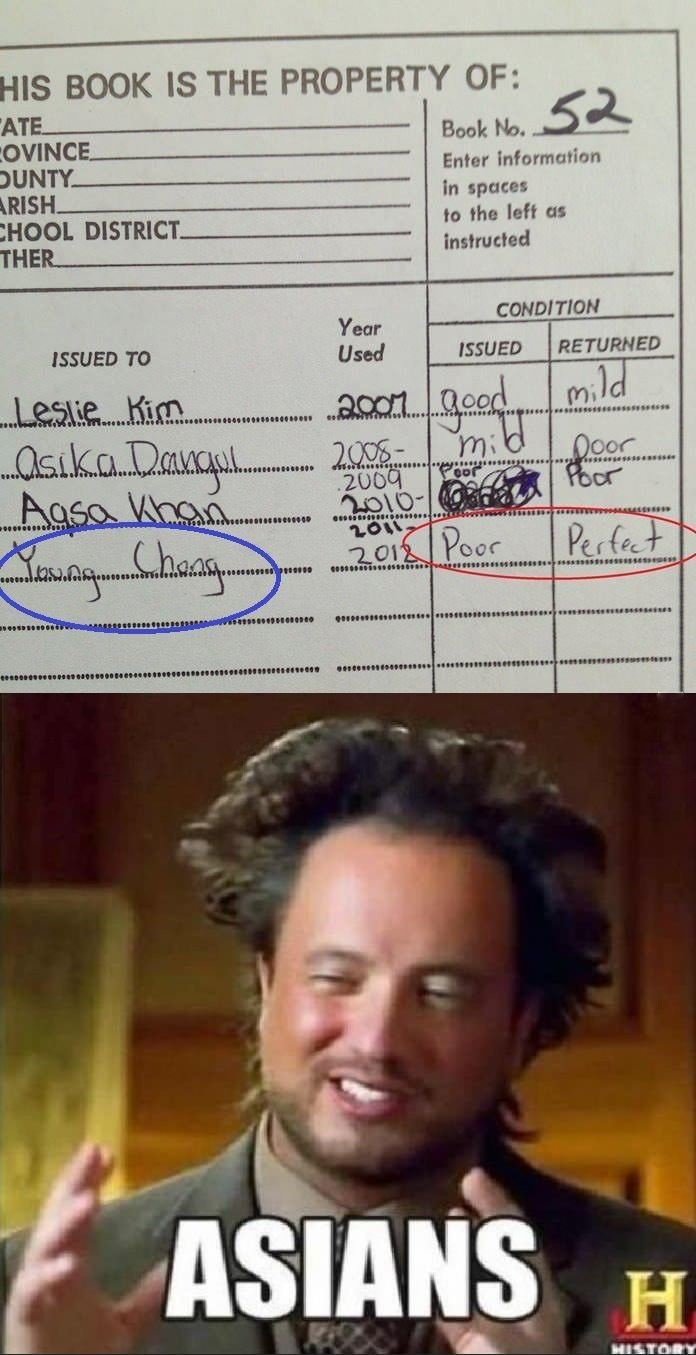 HIS BOOK IS THE PROPERTY OF:
ATE
ROVINCE
OUNTY
ARISH
CHOOL DISTRICT
THER
Book No. 52
Enter information
in spaces
to the left as
instructed
ISSUED TO
Year
Used
CONDITION
ISSUED
RETURNED
Leslie Kim 2007 good mild
Asika Dangul 2008- mild poor
2009 Poor Poor
Aqsa Khan 2010-
2011-
Young Chang 2012 Poor Perfect
ASIANS
H
HISTORY